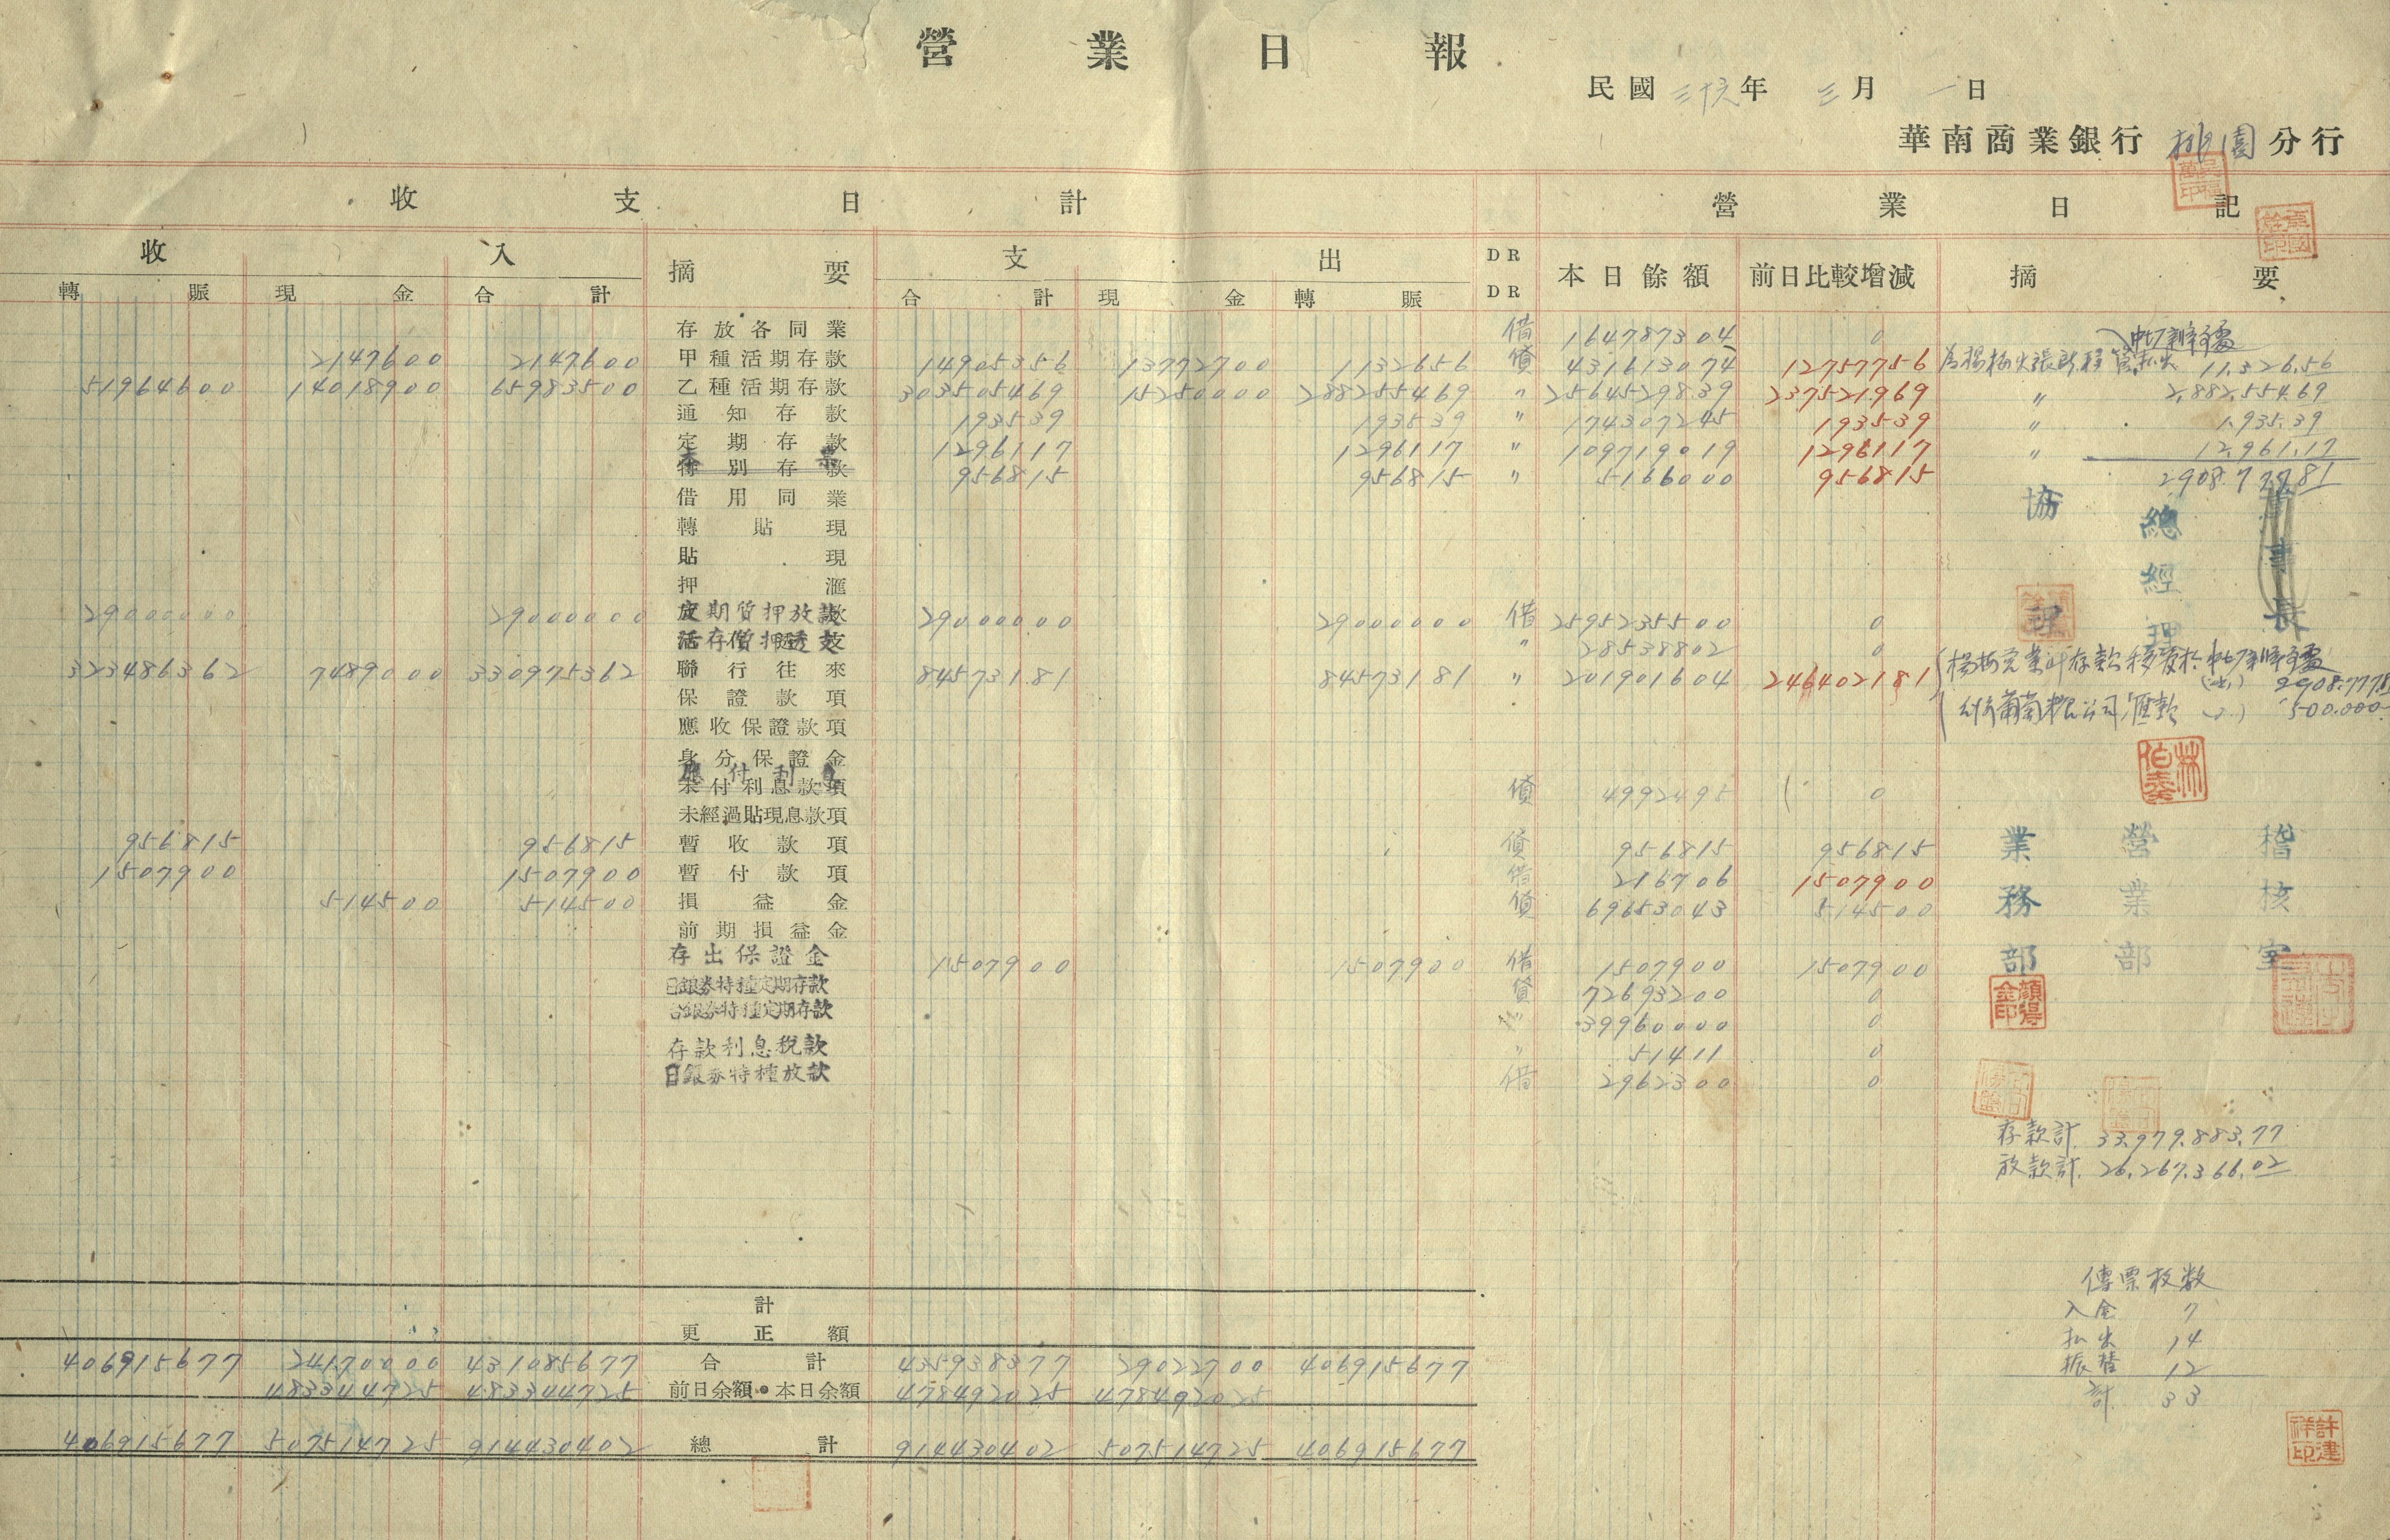 營業日報
民國三十六年三月一日
華南商業銀行桃園分行
收支日計 營業日記
收入 摘要 支出 DR DR 本日餘額 前日比較增減 摘要
轉賬 現金 合計 合計 現金 轉賬
存放各同業 借 164787304 0
2147600 2147600 甲種活期存款 14905356 13772700 1132656 債 431613074 12757756 11,326.56
51964600 14018900 65983500 乙種活期存款 303505469 15250000 288255469 〃 2564529839 237521969 〃 2,882,554.69
通知存款 193539 193539 〃 174307245 193539 〃 1,935.39
定期存款 1296117 1296117 〃 109719019 1296117 〃 12,961.17
特別存款 本票 956815 956815 〃 5166000 956815 2,908,777.81
借用同業
轉貼現
貼現
押滙
29000000 29000000 定期質押放款 29000000 29000000 借 2595235500 0
活存質押透支 〃 28538802 0
323486362 7489000 330975362 聯行往來 84573181 84573181 〃 201901604 246402181 2,908,777.81
保證款項 500,000
應收保證款項
身分保證金
未付利息款項 應付利息 債 4992495 0
未經過貼現息款項
956815 956815 暫收款項 債 956815 956815
1507900 1507900 暫付款項 借 216706 1507900
514500 514500 損益金 債 69653043 514500
前期損益金
存出保證金 1507900 1507900 借 1507900 1507900
日銀券特種定期存款 債 72693200 0
台銀券特種定期存款 〃 39960000 0
存款利息稅款 〃 51411 0
日銀券特種放款 借 2962300 0
協理 總經理 董事長
業務部 營業部 稽核室
林伯奏
顏得金印
存款計 33,979,883.77
放款計 26,267,366.02
傳票枚数
入金 7
払出 14
振替 12
計 33
計
更正額
406915677 24170000 431085677 合計 435938377 29022700 406915677
483344725 483344725 前日余額・本日余額 478492025 478492025
406915677 507514725 914430402 總計 914430402 507514725 406915677
許建祥印